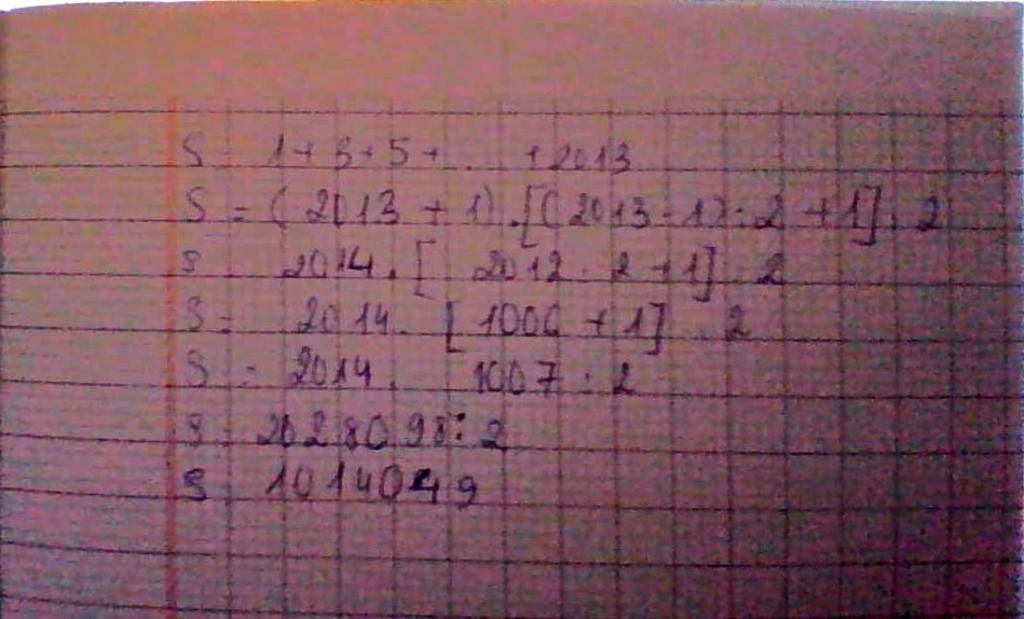 S = 1 + 3 + 5 + ... + 2013
S = (2013 + 1) . [(2013 - 1) : 2 + 1] : 2
S = 2014 . [ 2012 : 2 + 1] : 2
S = 2014 . [ 1006 + 1] : 2
S = 2014 . 1007 : 2
S = 2028098 : 2
S = 1014049